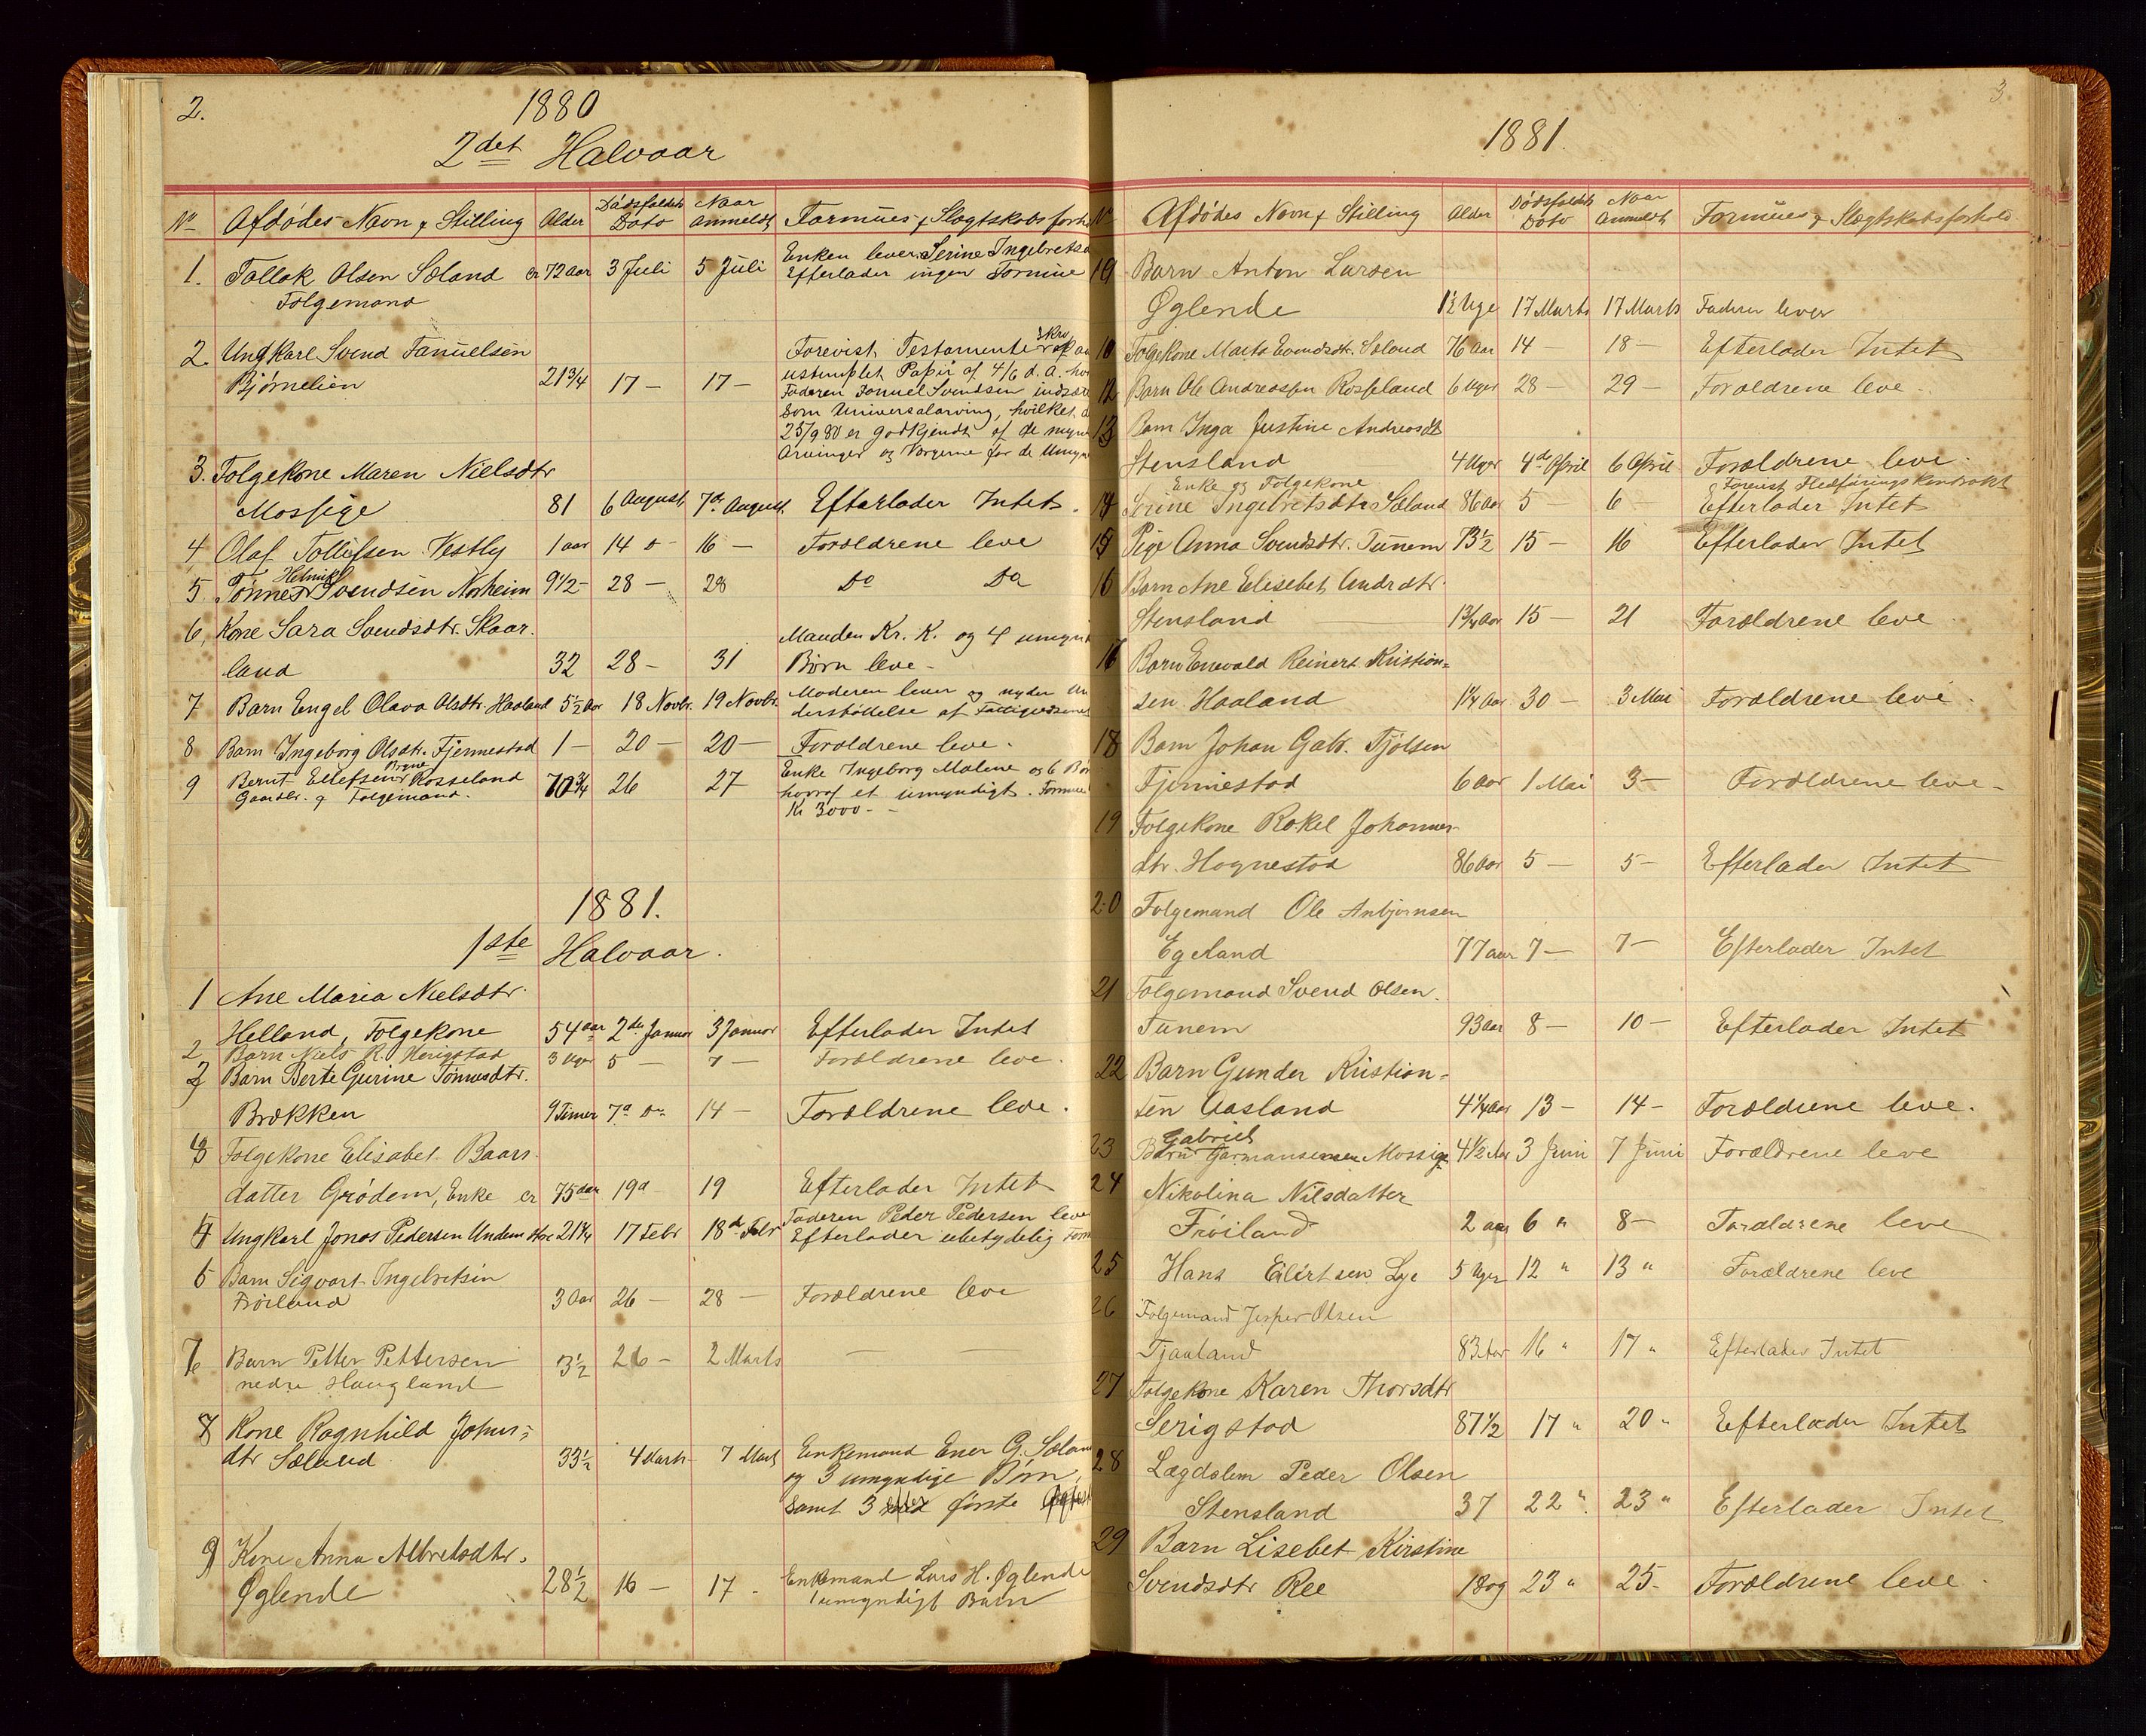 2.
1880
2det Halvaar
No Afdødes Navn & Stilling Alder Dødsfaldets Dato Naar anmeldt Formues & Slægtskabsforh
1. Tollak Olsen Sæland cr 72 Aar 3 Juli 5 Juli Enken lever Serine Ingebretsd
Folgemand Efterlader ingen Formue
2 Ungkarl Svend Tanuelsen Forevist Testamente
Bjørnelien 21 3/4 17 – 17 – ustemplet Papir af 4/6 d. A.
Faderen Svendsen
som Universalarving, hvilket
25/9 80 er godkjendt af de
Arvinger og Vargerne for de
3. Folgekone Maren Nielsdtr
Mossige 81 6 August 7de August Efterlader Intet.
4 Olaf Tollefsen Vestly 1 aar 14 d– 16 – Foroldrene leve
5 Tønnes Henrik Svendsen Norheim 9 1/2 – 28 – 28 Do Do
6, Kone Sara Svendsdtr. Skaar-
land 32 28 – 31 Manden Kr. K. og 4
Børn leve –
7 Barn Engel Olava Olsdtr. Haaland 5 1/2 Aar 18 Novbr. 19 Novbr. Moderen lever og nyder Un
derstøttelse af
8 Barn Ingeborg Olsdtr. Fjermestad 1 – 20 – 20 – Foroldrene leve.
9 Bernt Ellefsen Bryne Rosseland 70 3/4 26 27 Enke Ingeborg Malene og 6
Gaardbr. & Folgemand. hvoraf et umyndigt. Formue
Kr 3000 –
1881.
1ste Halvaar.
1 Ane Maria Nielsdtr.
Helland, Folgekone 54 aar 2den Januar 3 Januar Efterlader Intet
2 Barn Niels R. Herigstad 3 Uger 5 – 7 – Foroldrene leve.
3 Barn Berte Gurine Tønnesdtr.
Brækken 9 Timer 7d 14 – Foroldrene leve.
Folgekone Elisabet Baars-
datter Grødem, Enke cr 75 aar 19d 19 Efterlader Intet
4 Ungkarl Jonas Pedersen Undem 21 1/4 17 Febr 18d Febr Faderen Peder Pedersen leve
Efterlader ubetydelig
5 Barn Sigvart Ingebretsen
Frøiland 3 Aar 26 – 28 – Foroldrene leve
Barn Petter Pettersen 3 1/2 26 – 2 Marts — —
nedre Haugland
8 Kone Ragnhild Johns-
dtr Sæland 33 1/2 4 Marts 7 Marts Enkemand Ener G.
og 3 umyndige Børn,
samt 3 første
9 Kone Anna Albretsdtr.
Øglende 28 1/2 16 – 17 – Enkemand Lars H. Øglende
1 umyndigt Barn
3
1881.
No Afdødes Navn & Stilling Alder Dødsfaldets Dato Naar Anmeldt Formues & Slægtskabsforhold
10 Barn Anton Larsen
Øglende 1 1/2 Uge 17 Marts 17 Marts Faderen lever
Folgekone Marta Svendsdtr. Sæland 76 Aar 14 – 18 – Efterlader Intet
12 Barn Ole Andreassen Rosseland 6 Uger 28 – 29 – Foroldrene leve.
13 Barn Inga Justine Andreasdtr
Stensland 4 Uger 4de April 6 April Foroldrene leve.
Enke og Folgekone & Forevist
14 Serine Ingebretsdtr Sæland 86 Aar 5 – 6 – Efterlader Intet
15 Pige Anna Svendsdtr. Tunem 73 1/2 15 – 16 Efterlader Intet
16 Barn Ane Elisebet Andrdtr.
Stensland 1 3/4 Aar 15 – 21 Foroldrene leve
Barn Enevald Reinert Kristian-
sen Haaland 1 1/4 Aar 30 – 3 Mai Foroldrene leve.
18 Barn Johan Gabr. Tjølsen
Fjermestad 6 Aar 1 Mai 3 – Foroldrene leve –
19 Folgekone Rakel Johannes-
dtr. Hognestad 86 Aar 5 – 5 – Efterlader Intet
20 Folgemand Ole Anbjørnsen
Egeland 77 aar 7 – 7 – Efterlader Intet
21 Folgemand Svend Olsen.
Tunem 93 aar 8 – 10 – Efterlader Intet
22 Barn Gunder Kristian-
sen Aasland 4 1/4 Aar 13 – 14 – Foroldrene leve.
23 Barn Gabriel Mossige 4 1/2 Aar 3 Juni 7 Juni Forældrene leve
24 Nikolina Nilsdatter
Frøiland 2 aar 6 " 8 – Forældrene leve
25 Hans Eilertsen Lye 5 Uger 12 " 13 " Forældrene leve
26 Folgemand Jesper Olsen
Tjaaland 83 Aar 16 " 17 " Efterlader Intet
27 Folgekone Karen Thorsdtr
Serigstad 87 1/2 17 " 20 " Efterlader Intet
28 Lægdslem Peder Olsen
Stensland 37 22 " 23 " Efterlader Intet
29 Barn Lisebet Kirstine
Svendsdtr Ree 1 Dag 23 " 25 – Forældrene leve.